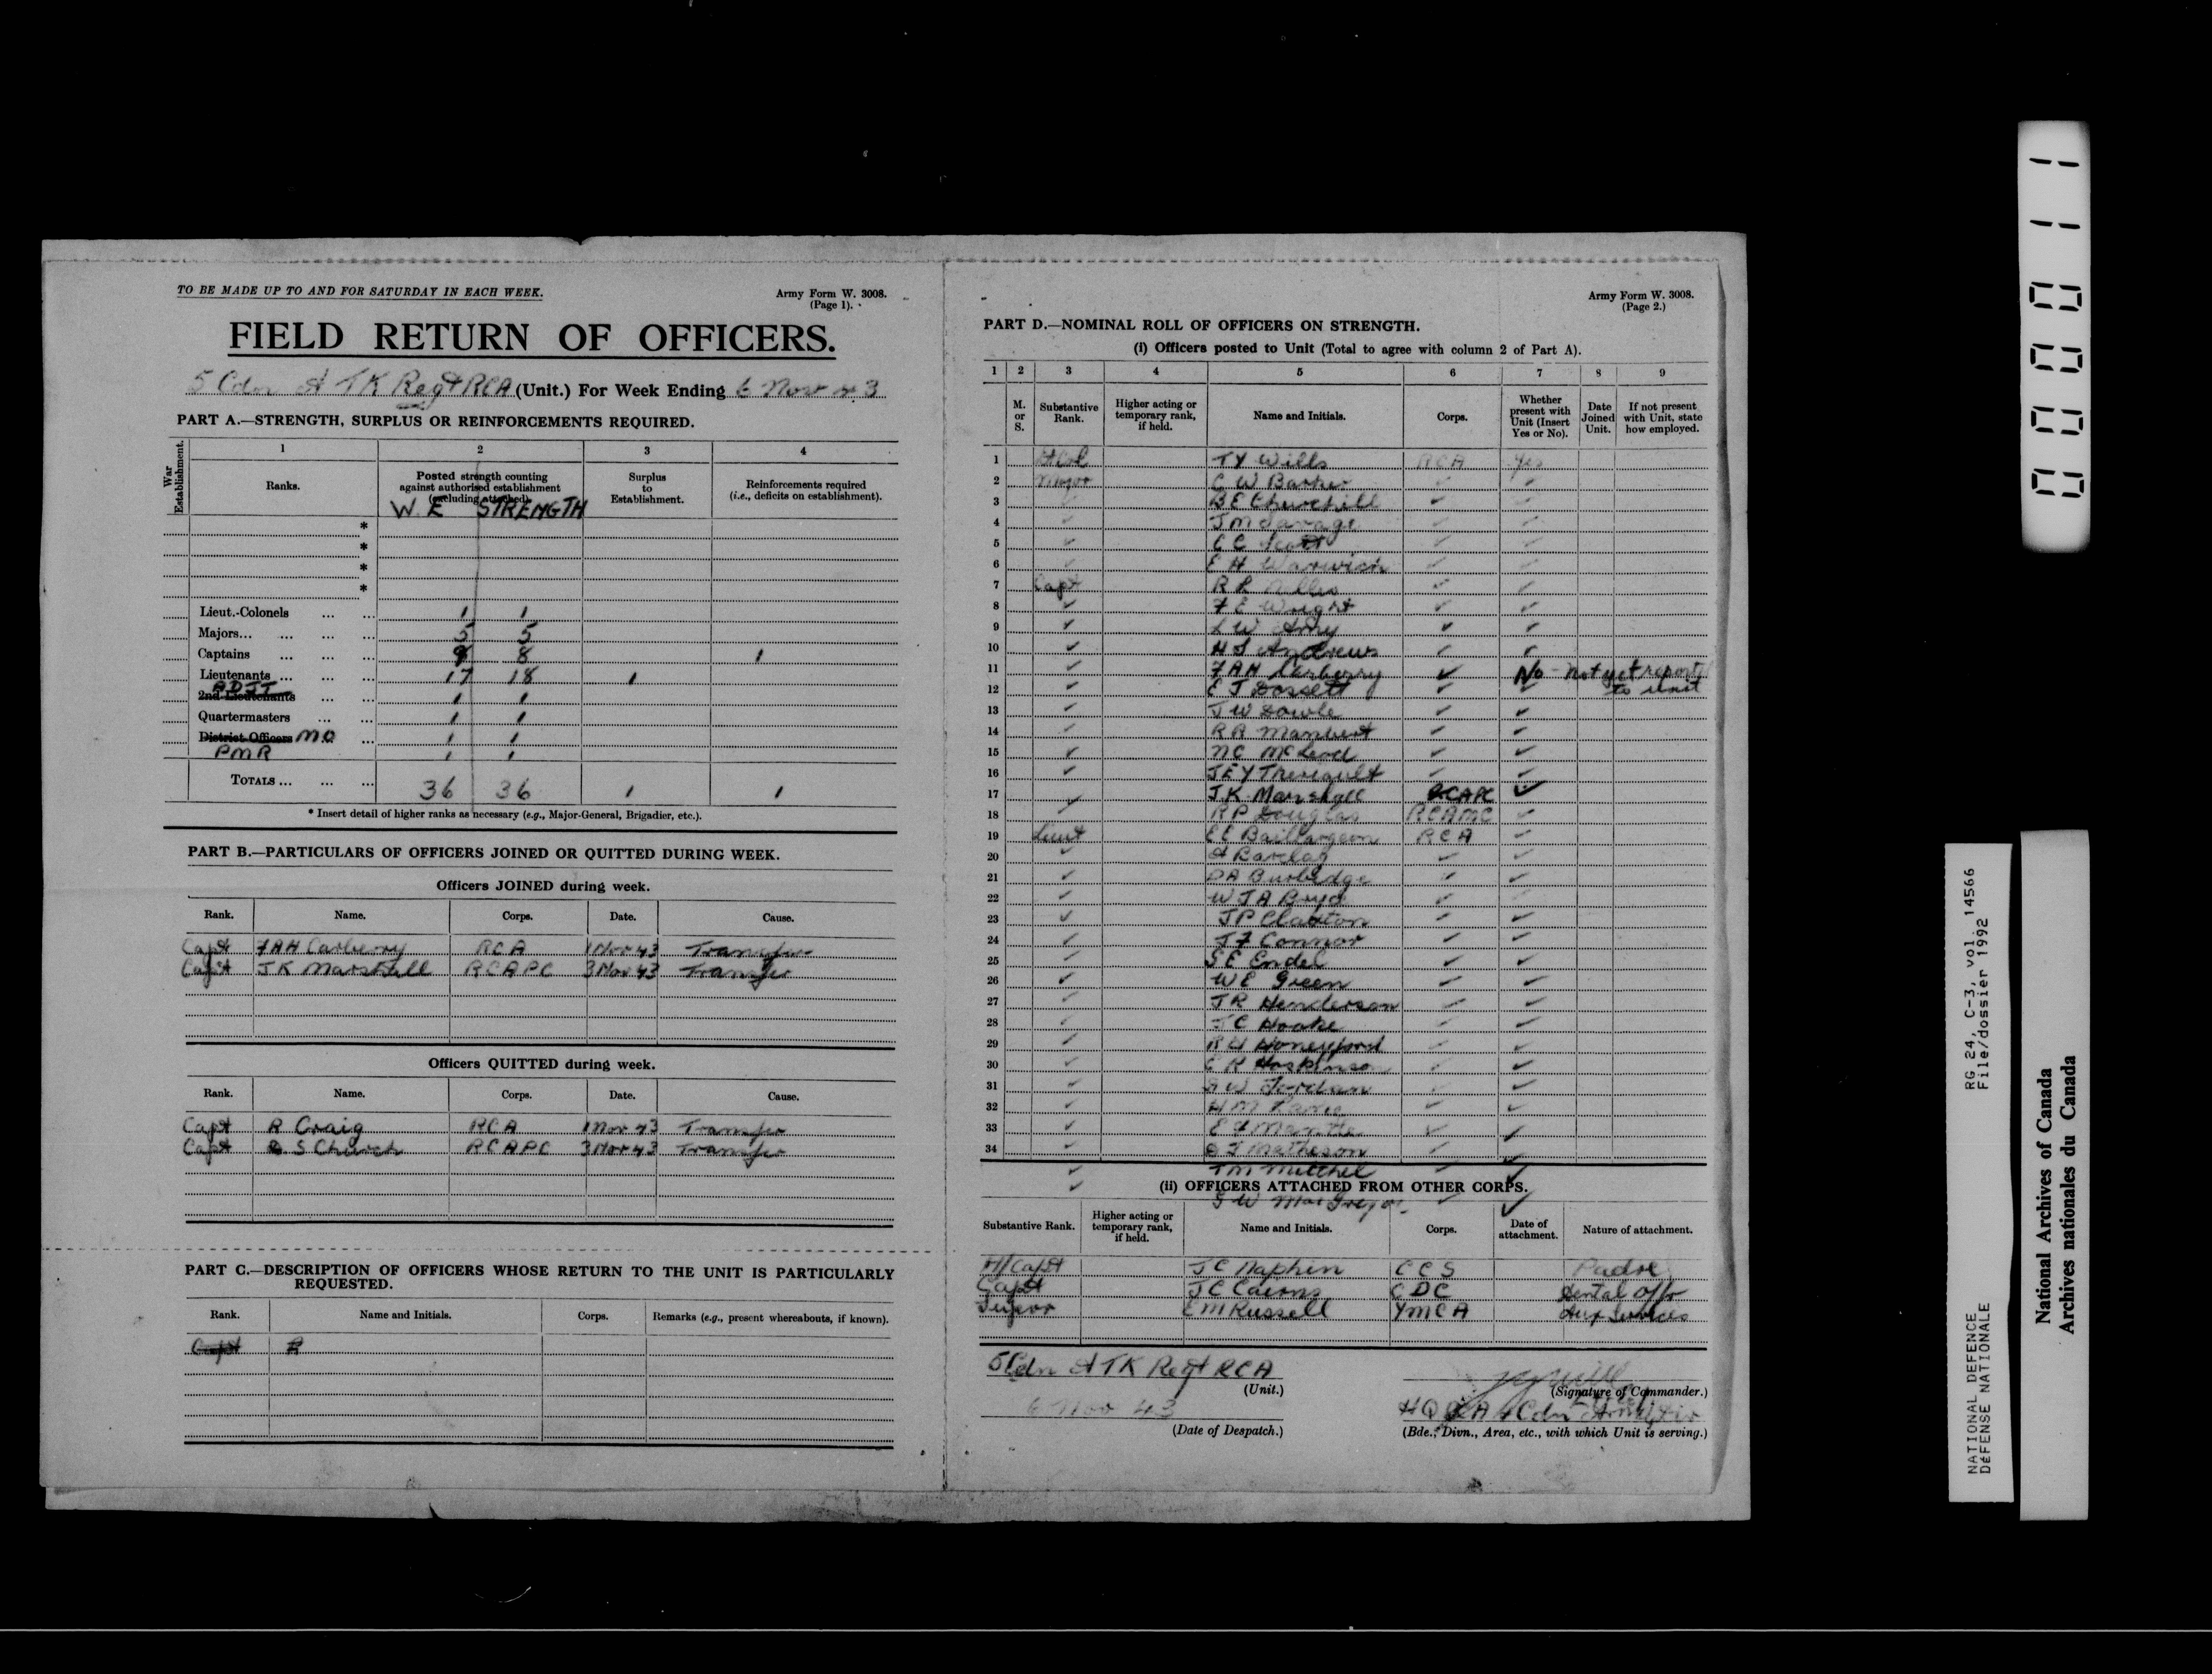 TO BE MADE UP TO AND FOR SATURDAY IN EACH WEEK.
Army Form W. 3008.
(Page 1).
FIELD RETURN OF OFFICERS.
5 Cdn A TK Regt RCA (Unit.) For Week Ending 6 Nov 43
PART A.—STRENGTH, SURPLUS OR REINFORCEMENTS REQUIRED.
War Establishment.
1 2 3 4
Ranks.
Posted strength counting against authorised establishment (excluding attached).
Surplus to Establishment.
Reinforcements required (i.e., deficits on establishment).
W.E STRENGTH
*
*
*
*
Lieut.-Colonels ... ... 1 1
Majors... ... ... ... 5 5
Captains ... ... ... 9 8 1
Lieutenants ... ... ... 17 18 1
ADJT
2nd Lieutenants ... ... 1 1
Quartermasters ... ... 1 1
District Officers MO ... 1 1
PMR 1 1
TOTALS ... ... ... 36 36 1 1
* Insert detail of higher ranks as necessary (e.g., Major-General, Brigadier, etc.).
PART B.—PARTICULARS OF OFFICERS JOINED OR QUITTED DURING WEEK.
Officers JOINED during week.
Rank. Name. Corps. Date. Cause.
Capt FAH Carberry RCA 1 Nov 43 Transfer
Capt JK Marshall RCAPC 3 Nov 43 Transfer
Officers QUITTED during week.
Rank. Name. Corps. Date. Cause.
Capt R Craig RCA 1 Nov 43 Transfer
Capt S Church RCAPC 3 Nov 43 Transfer
PART C.—DESCRIPTION OF OFFICERS WHOSE RETURN TO THE UNIT IS PARTICULARLY
REQUESTED.
Rank. Name and Initials. Corps. Remarks (e.g., present whereabouts, if known).
Capt R
Army Form W. 3008.
(Page 2.)
PART D.—NOMINAL ROLL OF OFFICERS ON STRENGTH.
(i) Officers posted to Unit (Total to agree with column 2 of Part A).
1 2 3 4 5 6 7 8 9
M. or S.
Substantive Rank.
Higher acting or temporary rank, if held.
Name and Initials.
Corps.
Whether present with Unit (Insert Yes or No).
Date Joined Unit.
If not present with Unit, state how employed.
1 TY Wills RCA Yes
2 Major C W Barker
3 BE Churchill
4 JM Savage
5 CC Scott
6 E H Warwick
7 Capt R L
8 FE Wright
9 LW
10 HS Andrews
11 FAH Carberry No - not yet report
to unit
12 E J Dossett
13 JW Dowle
14 RR
15 NC McLeod
16 JEY Theriault
17 J.K. Marshall RCAPC
18 RP Douglas RCAMC
19 Lieut EE Baillargeon RCA
20 A Barclay
21 DA Burbidge
22 WJA Boyd
23 JP Claxton
24 JF Connor
25 SE Endel
26 WE Green
27 JR Henderson
28 JC Hooke
29 Honeyford
30 Hoskinson
31 Jordan
32 HM
33
34 Matheson
TM Mitchel
(ii) OFFICERS ATTACHED FROM OTHER CORPS.
G W MacGregor
Substantive Rank.
Higher acting or temporary rank, if held.
Name and Initials.
Corps.
Date of attachment.
Nature of attachment.
H/Capt JC Naphin CCS Padre
Capt JC Cairns CDC Dental Offr
Super EM Russell YMCA Aux Services
5 Cdn A TK Regt RCA
(Unit.)
(Signature of Commander.)
6 Nov 43
(Date of Despatch.)
HQ RCA 4 Cdn Armd Div
(Bde., Divn., Area, etc., with which Unit is serving.)
000011
RG 24, C-3, vol. 14566
File/dossier 1992
NATIONAL DEFENCE
DÉFENSE NATIONALE
National Archives of Canada
Archives nationales du Canada